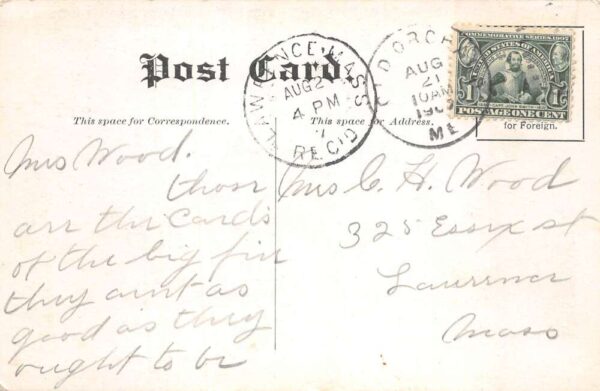 Post Card
This space for Correspondence.
This space for Address.
LAWRENCE, MASS.
AUG 2
4 PM
REC'D
OLD ORCH
AUG
21
10AM
190
ME
COMMEMORATIVE SERIES 1907
UNITED STATES OF AMERICA
1 1
POSTAGE ONE CENT
for Foreign.
Mrs Wood.
those
are the Cards
of the big fire
they aint as
good as they
ought to be
Mrs C. H. Wood
325 Essex st
Lawrence
Mass